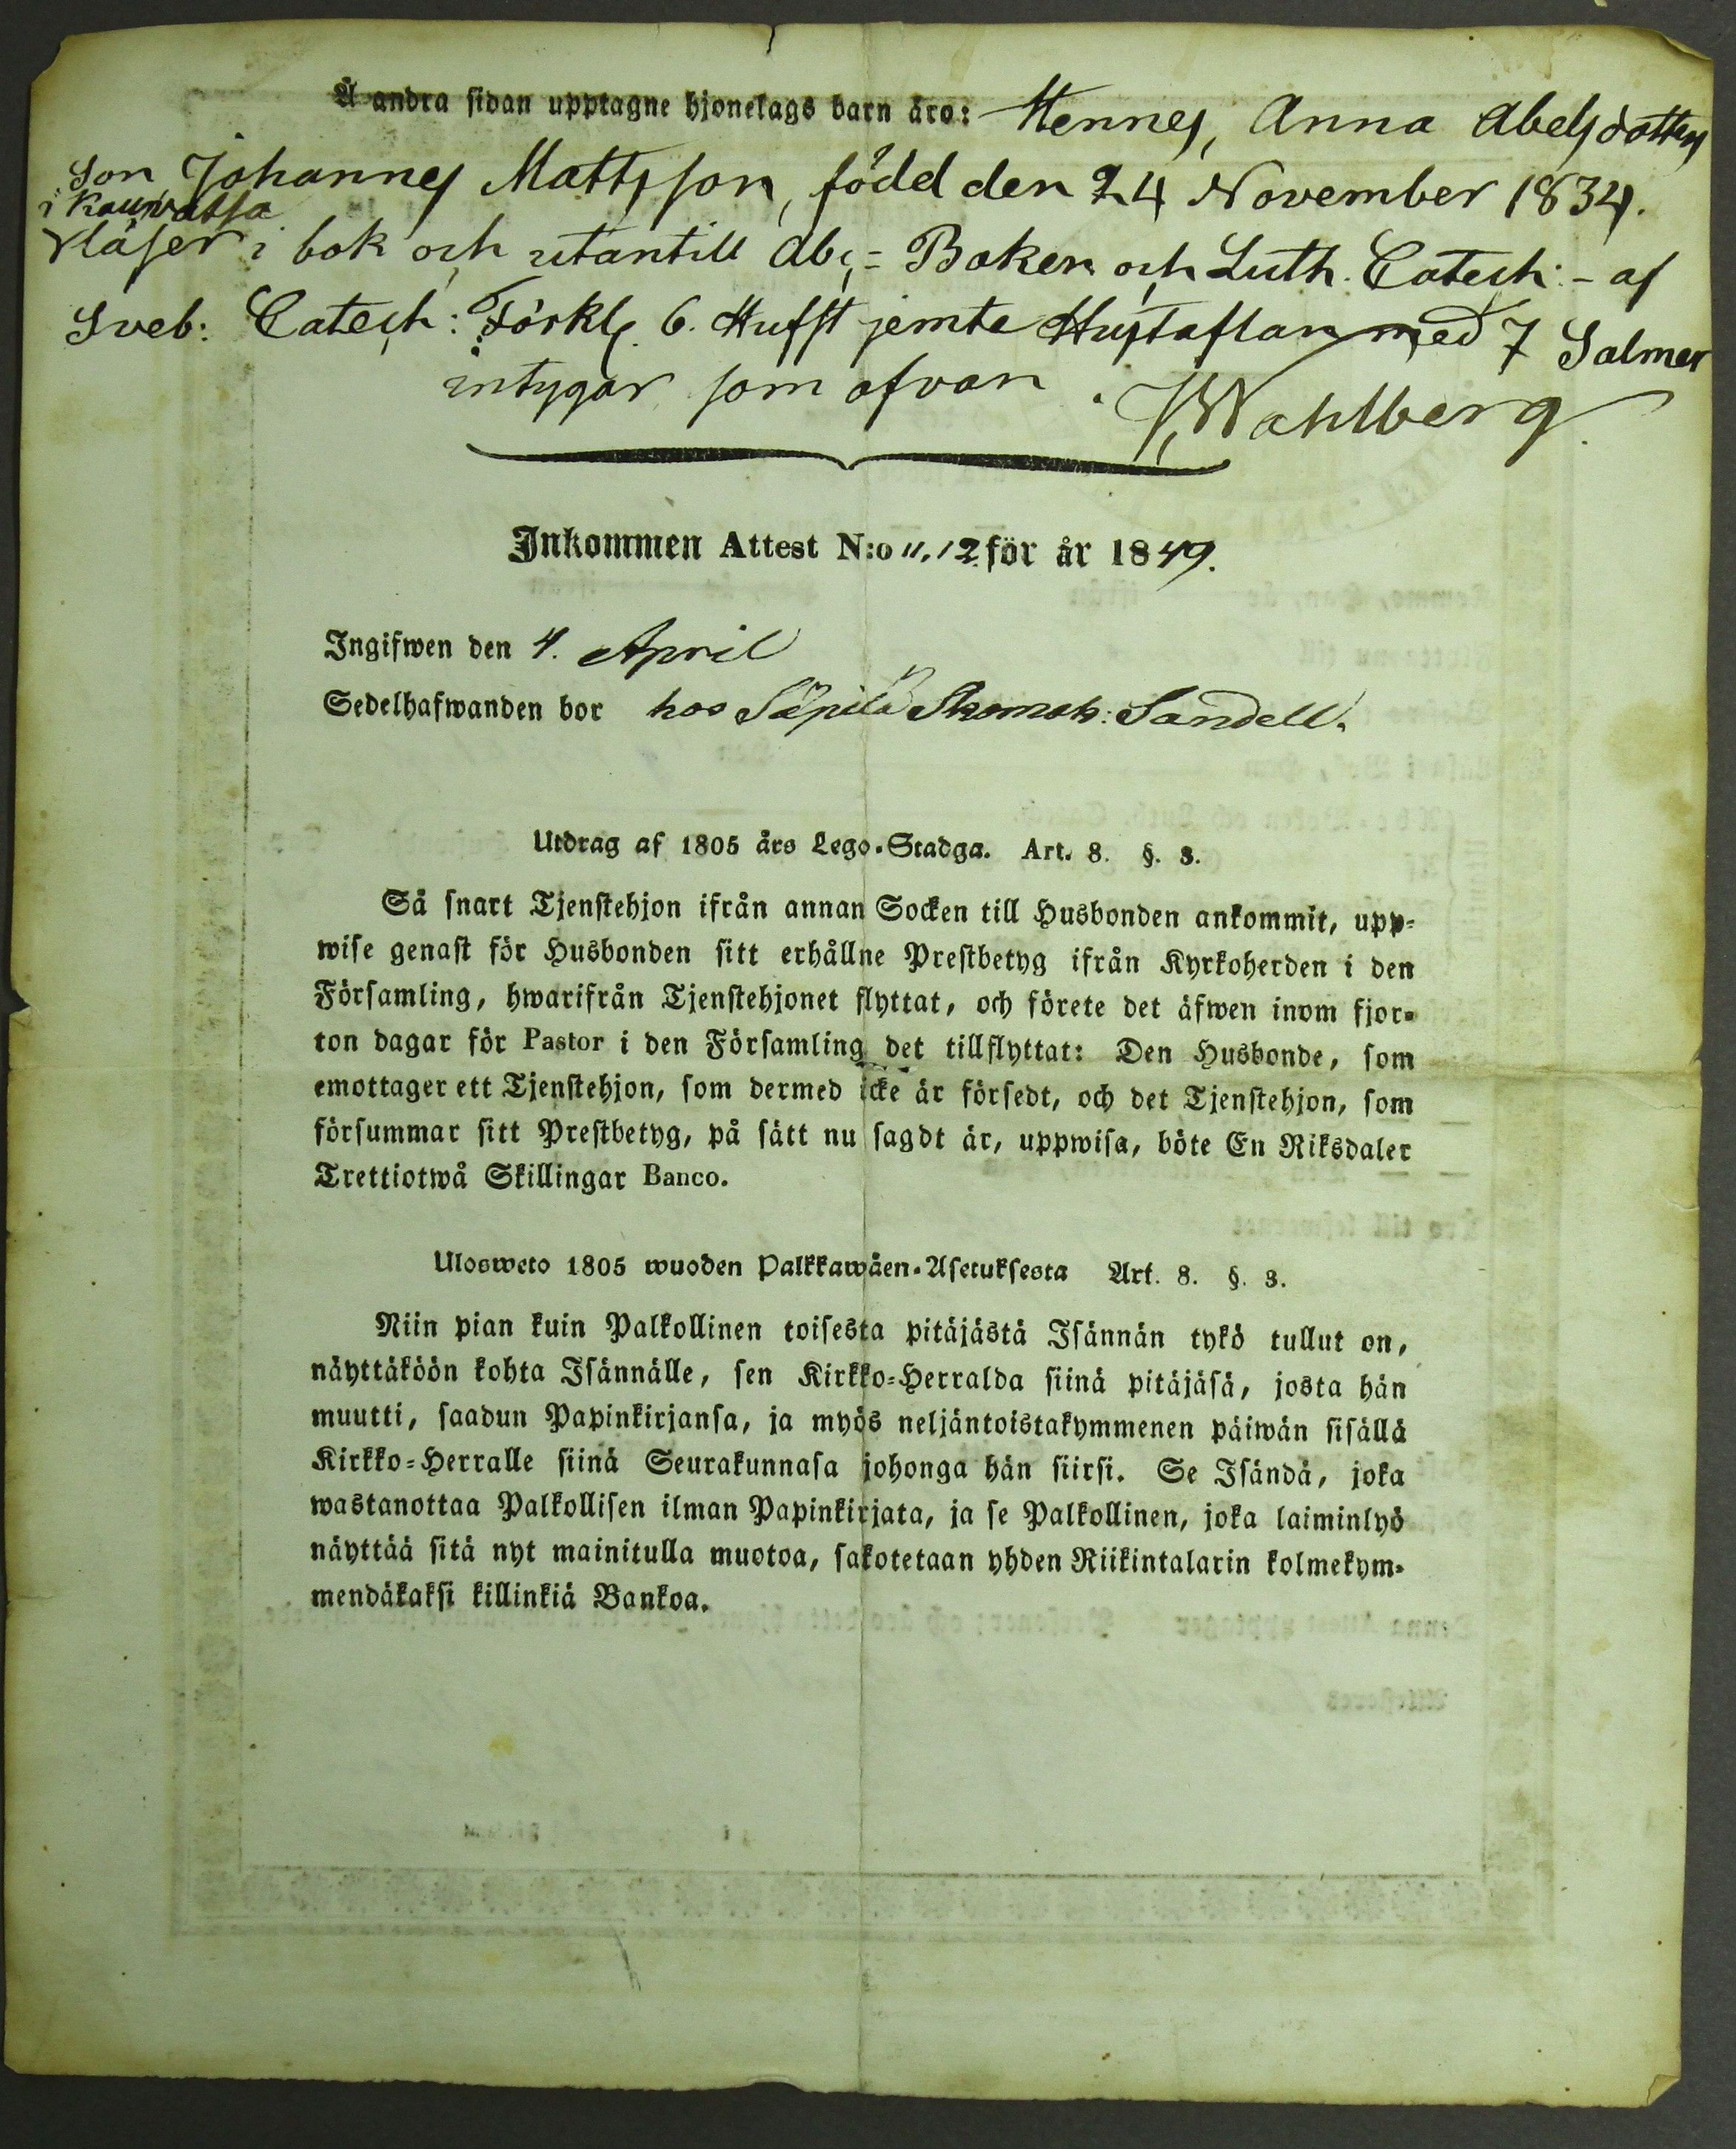 Å andra sidan upptagne hjonelags barn äro: Hennes, Anna Abelsdotters
Son Johannes Mattsson, född den 24 November 1834.
i Kauvatsa
läser i bok och utantill Abc-Boken och Luth. Catech:- af
Sveb: Catech: Förkl. 6. Hufst jemte Hustaflan med 7 Salmer
intygar som ofvan. Wahlberg
Inkommen Attest N:o 11, 12 för år 1849.
Ingifwen den 4. April
Sedelhafwanden bor hos Säpilä Skomak: Sandell.
Utdrag af 1805 års Lego-Stadga. Art. 8. §. 3.
Så snart Tjenstehjon ifrån annan Socken till Husbonden ankommit, upp-
wise genast för Husbonden sitt erhållne Prestbetyg ifrån Kyrkoherden i den
Församling, hwarifrån Tjenstehjonet flyttat, och förete det äfwen inom fjor-
ton dagar för Pastor i den Församling det tillflyttat: Den Husbonde, som
emottager ett Tjenstehjon, som dermed icke är försedt, och det Tjenstehjon, som
försummar sitt Prestbetyg, på sätt nu sagdt är, uppwisa, böte En Riksdaler
Trettiotwå Skillingar Banco.
Ulosweto 1805 wuoden Palkkawäen-Asetuksesta Art. 8. §. 3.
Niin pian kuin Palkollinen toisesta pitäjästä Isännän tykö tullut on,
näyttäköön kohta Isännälle, sen Kirkko-Herralda siinä pitäjäsä, josta hän
muutti, saadun Papinkirjansa, ja myös neljäntoistakymmenen päiwän sisällä
Kirkko-Herralle siinä Seurakunnasa johonga hän siirsi. Se Isändä, joka
wastanottaa Palkollisen ilman Papinkirjata, ja se Palkollinen, joka laiminlyö
näyttää sitä nyt mainitulla muotoa, sakotetaan yhden Riikintalarin kolmekym-
mendäkaksi killinkiä Bankoa.